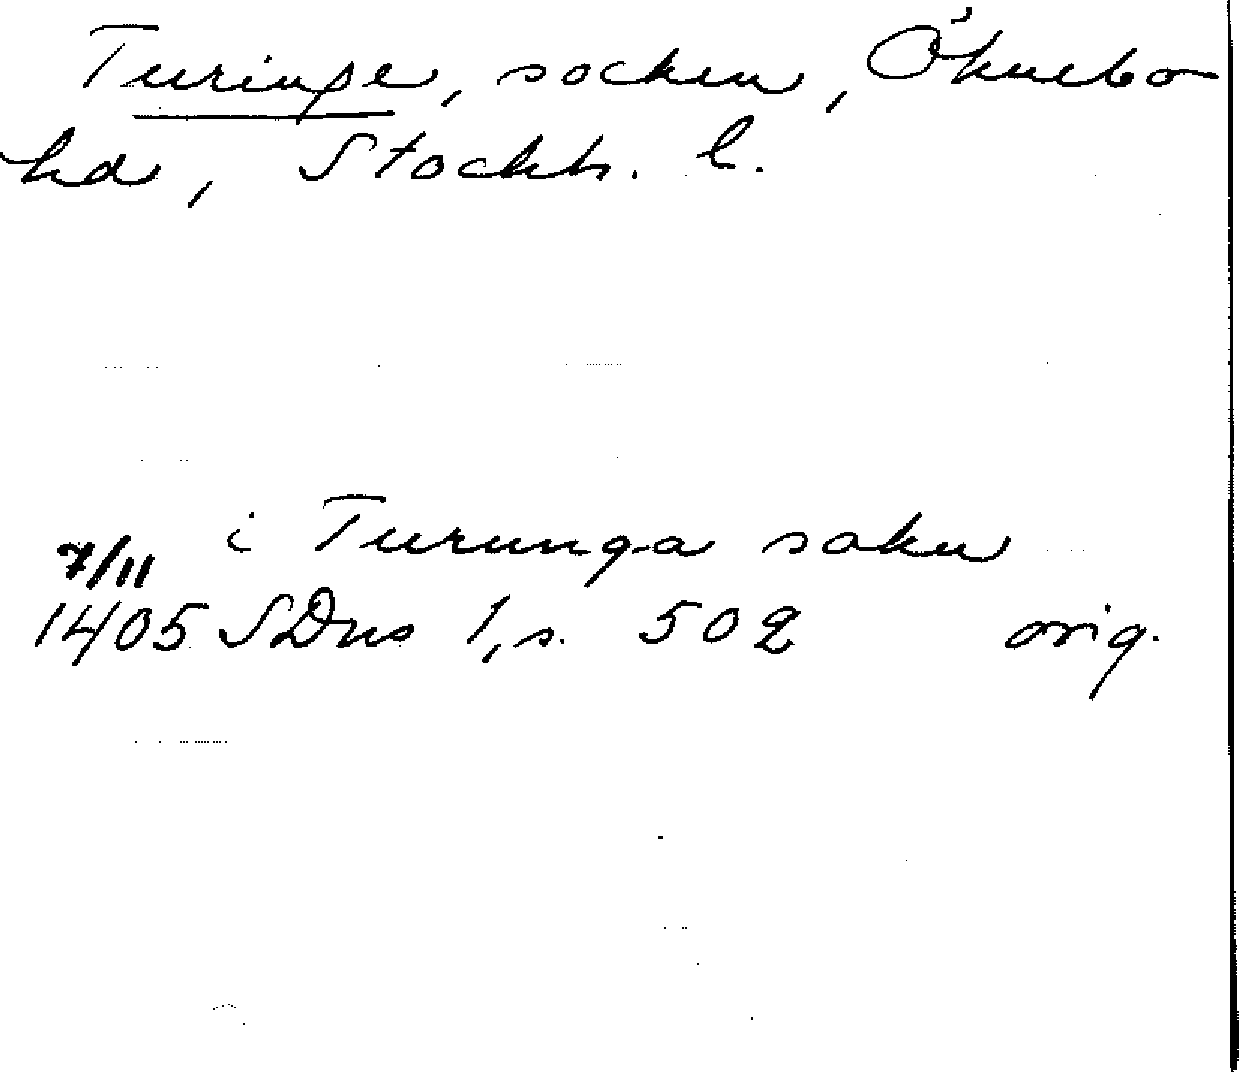 Turinge, socken, Öknebo
hd, Stockh. l.
i Turunga sokn
7/11
1405 SDns 1, s. 502 orig.